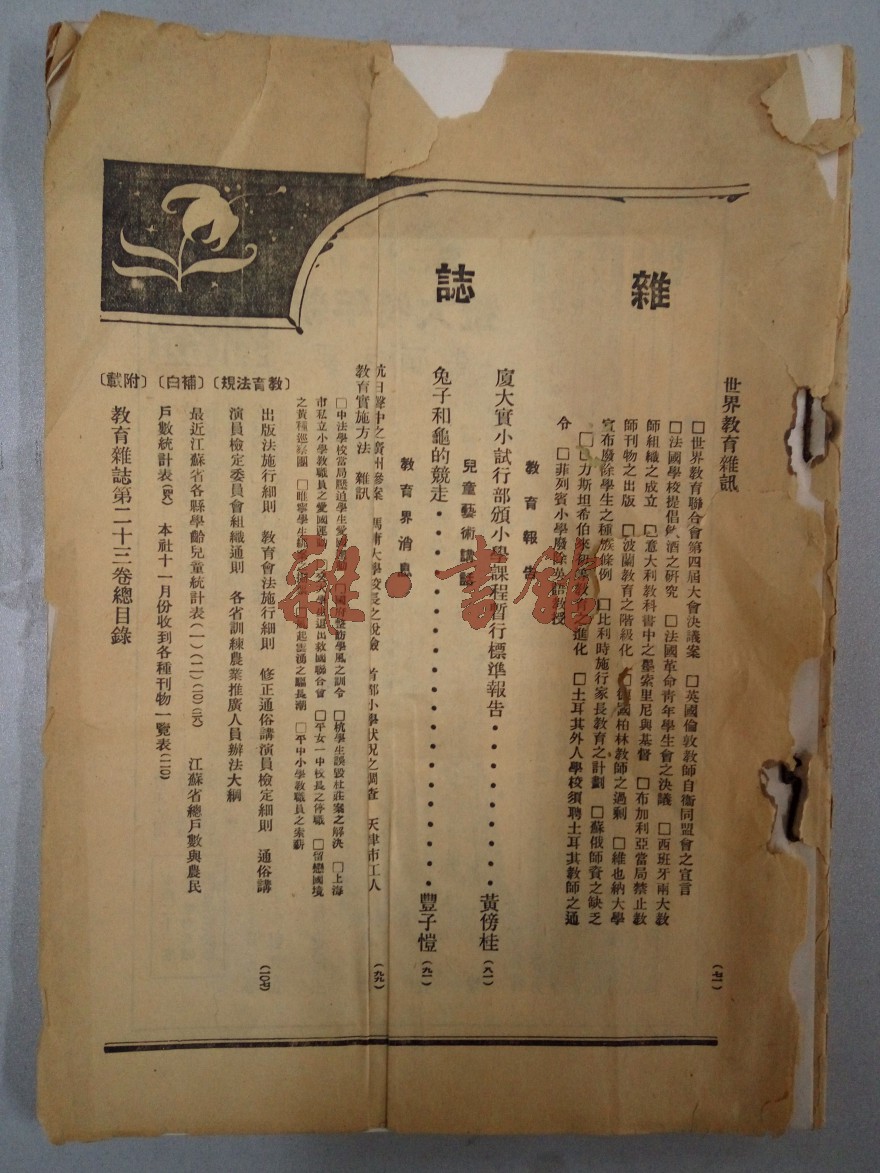 雜誌
世界教育雜訊（七一）
□世界教育聯合會第四屆大會決議案　□英國倫敦教師自衞同盟會之宣言
□法國學校提倡飲酒之研究　□法國革命青年學生會之決議　□西班牙兩大教
師組織之成立　□意大利教科書中之墨索里尼與基督　□布加利亞當局禁止教
師刊物之出版　□波蘭教育之階級化　□德國柏林教師之過剩　□維也納大學
宣布廢除學生之種族條例　□比利時施行家長教育之計劃　□蘇俄師資之缺乏
□巴力斯坦希伯來 教育之進化　□土耳其外人學校須聘土耳其教師之通
令　□菲列賓小學廢除英語教授
教育報告
廈大實小試行部頒小學課程暫行標準報告・・・・・・・・黃傍桂（八一）
兒童藝術講話
兔子和龜的競走・・・・・・・・・・・・・・・・・・・豐子愷（九一）
教育界消息
抗日聲中之廣州慘案　馮庸大學校長之脫險　首都小學狀況之調查　天津市工人
教育實施方法　雜訊（九九）
□中法學校當局壓迫學生愛國運動　□國府整飭學風之訓令　□杭學生誤毀杜莊案之解決　□上海
市私立小學教職員之愛國運動　退出救國聯合會　□平女一中校長之停職　□留戀國境
之黃種巡察團　□唯寧學生 起雲湧之驅長潮　□平中小學教職員之索薪
〔教育法規〕
出版法施行細則　教育會法施行細則　修正通俗講演員檢定細則　通俗講
演員檢定委員會組織通則　各省訓練農業推廣人員辦法大綱（一〇七）
〔補白〕
最近江蘇省各縣學齡兒童統計表（一）（二）　江蘇省總戶數與農民
戶數統計表　本社十一月份收到各種刊物一覽表（一一〇）
〔附載〕
教育雜誌第二十三卷總目錄
雜・書館